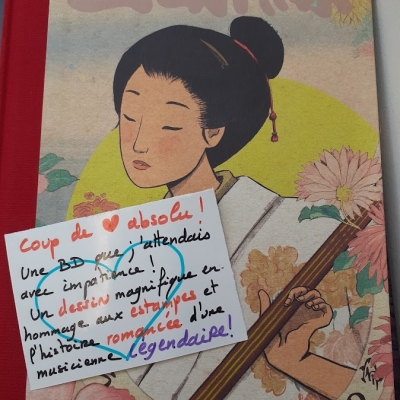 Coup de ♥ absolu !
Une BD que j'attendais
avec impatience !
Un dessin magnifique en
hommage aux estampes et
l'histoire romancée d'une
musicienne légendaire !